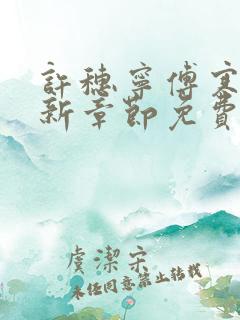 許穗寧傅寒
新章節免費
虞潔宋
未經同意禁止轉載